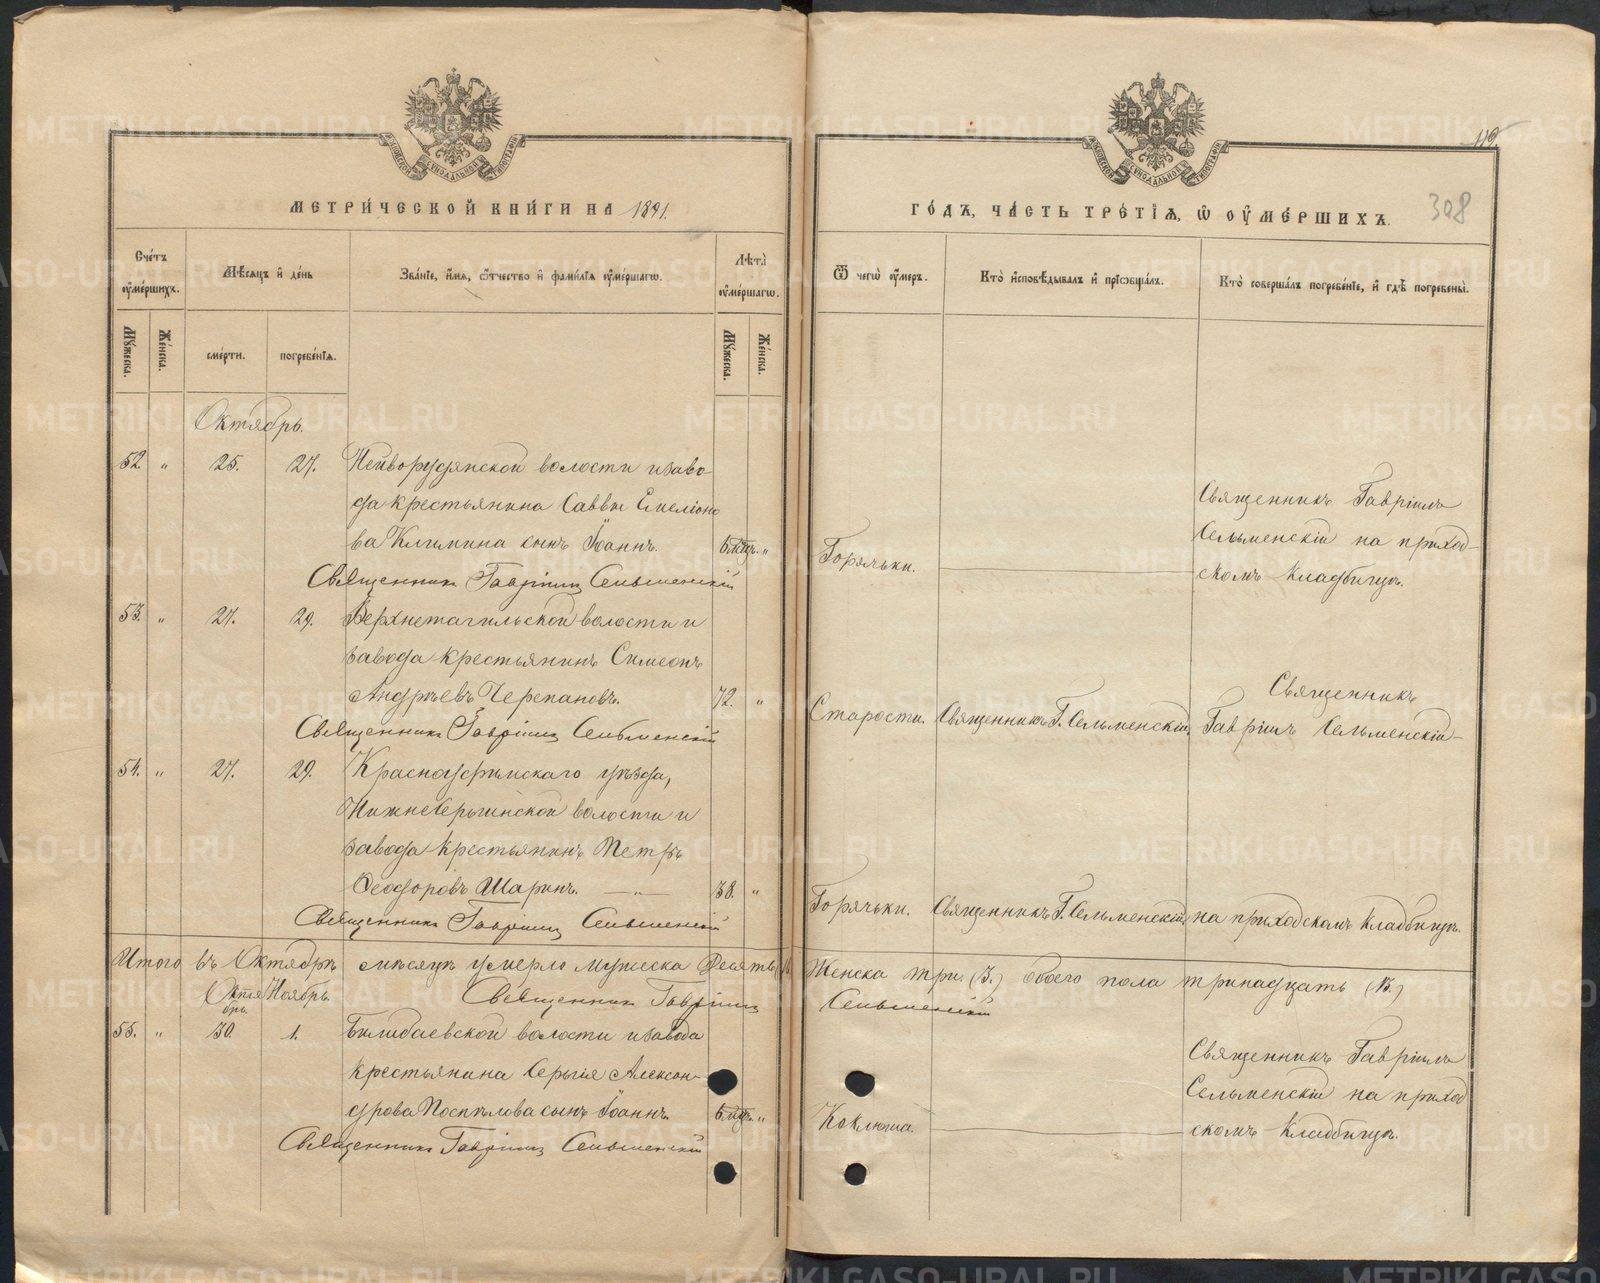 119.
308
МЕТРИ́ЧЕСКОЙ КНИ́ГИ НА 1891.
Сче́тъ оу҆ме́ршихъ.
Мѣсяцъ и҆ де́нь
Зва́нїе, и҆́мя, ѻ҆́тчество и҆ фами́лїя оу҆ме́ршагѡ.
Лѣта̀ оу҆ме́ршагѡ.
Мꙋ́жеска.
Же́нска.
сме́рти.
погребе́нїѧ.
Мꙋ́жеска.
Же́нска.
Октябрь.
52. " 25. 27. Нейворудянской волости и заво-
да крестьянина Саввы Емеліоно
ва Климина сынъ Іоаннъ. 6 мц. "
Священникъ Гавріилъ Сельменскій
53. " 27. 29. Верхнетагильской волости и
завода крестьянинъ Симеонъ
Андреевъ Черепановъ. 72. "
Священникъ Гавріилъ Сельменскій
54. " 27. 29. Красноуфимскаго уѣзда,
Нижнесергинской волости и
завода крестьянинъ Петръ
Ѳеодоровъ Шаринъ. — " — 38. "
Священникъ Гавріилъ Сельменскій
Итого въ Октябрѣ мѣсяцѣ умерло мужеска десять
Октябрь. Ноябрь.
Священникъ Гавріилъ
55. " 30. 1. Билибаевской волости и завода
крестьянина Сергія Алексан-
дрова Поспѣлова сынъ Іоаннъ. 6 мц. "
Священникъ Гавріилъ Сельменскій
ГО́ДЪ, ЧА́СТЬ ТРЕ́ТЇѦ, Ѡ҆ ОУ҆МЕ́РШИХЪ.
Ѿ чегѡ̀ оу҆́меръ.
Кто̀ и҆сповѣ́дывалъ и҆ прїѻбща́лъ.
Кто̀ соверша́лъ погребе́нїе, и҆ гдѣ̀ погребены̀.
Священникъ Гавріилъ
Горячки. Сельменскій на приход-
скомъ кладбищѣ.
Священникъ
Старости. Священникъ Г. Сельменскій. Гавріилъ Сельменскій
Горячки. Священникъ Г. Сельменскій. на приходскомъ кладбищѣ.
Женска три. (3.) обоего пола тринадцать (13.)
Сельменскій
Священникъ Гавріилъ
Сельменскій на приход
Коклюша. скомъ кладбищѣ.